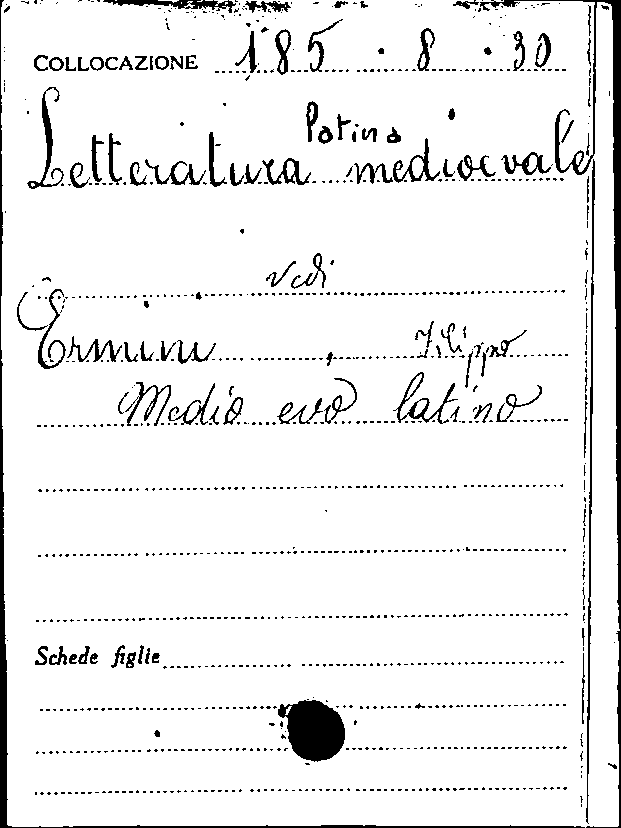 COLLOCAZIONE 185 . 8 . 30
latina
Letteratura medioevale
Vedi
Ermini , Filippo
Medio evo latino
Schede figlie